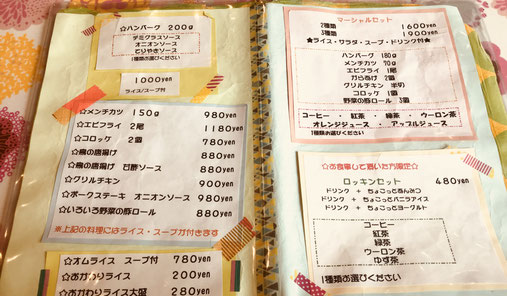 ☆ハンバーグ 200g
デミグラスソース
オニオンソース
てりやきソース
1種類お選びください
1000yen
ライス/スープ付
☆メンチカツ 150g 980yen
☆エビフライ 2尾 1180yen
☆コロッケ 2個 780yen
☆鶏の唐揚げ 880yen
☆鶏の唐揚げ 甘酢ソース 880yen
☆グリルチキン 900yen
☆ポークステーキ オニオンソース 980yen
☆いろいろ野菜の豚ロール 880yen
※上記の料理にはライス・スープが付きます
☆オムライス スープ付 780yen
☆おかわりライス 200yen
☆おかわりライス大盛 280yen
マーシャルセット
2種類 1600yen
3種類 1900yen
★ライス・サラダ・スープ・ドリンク付★
ハンバーグ 180g
メンチカツ 70g
エビフライ 1尾
から揚げ 2個
グリルチキン 半め
コロッケ 1個
野菜の豚ロール 3個
コーヒー ・ 紅茶 ・ 緑茶 ・ ウーロン茶
オレンジジュース ・ アップルジュース
1種類お選びください
☆お食事して頂いた方限定☆
ロッキンセット 480yen
ドリンク + ちょこっとあんみつ
ドリンク + ちょこっとバニラアイス
ドリンク + ちょこっとヨーグルト
コーヒー
紅茶
緑茶
ウーロン茶
ゆず茶
1種類お選びください